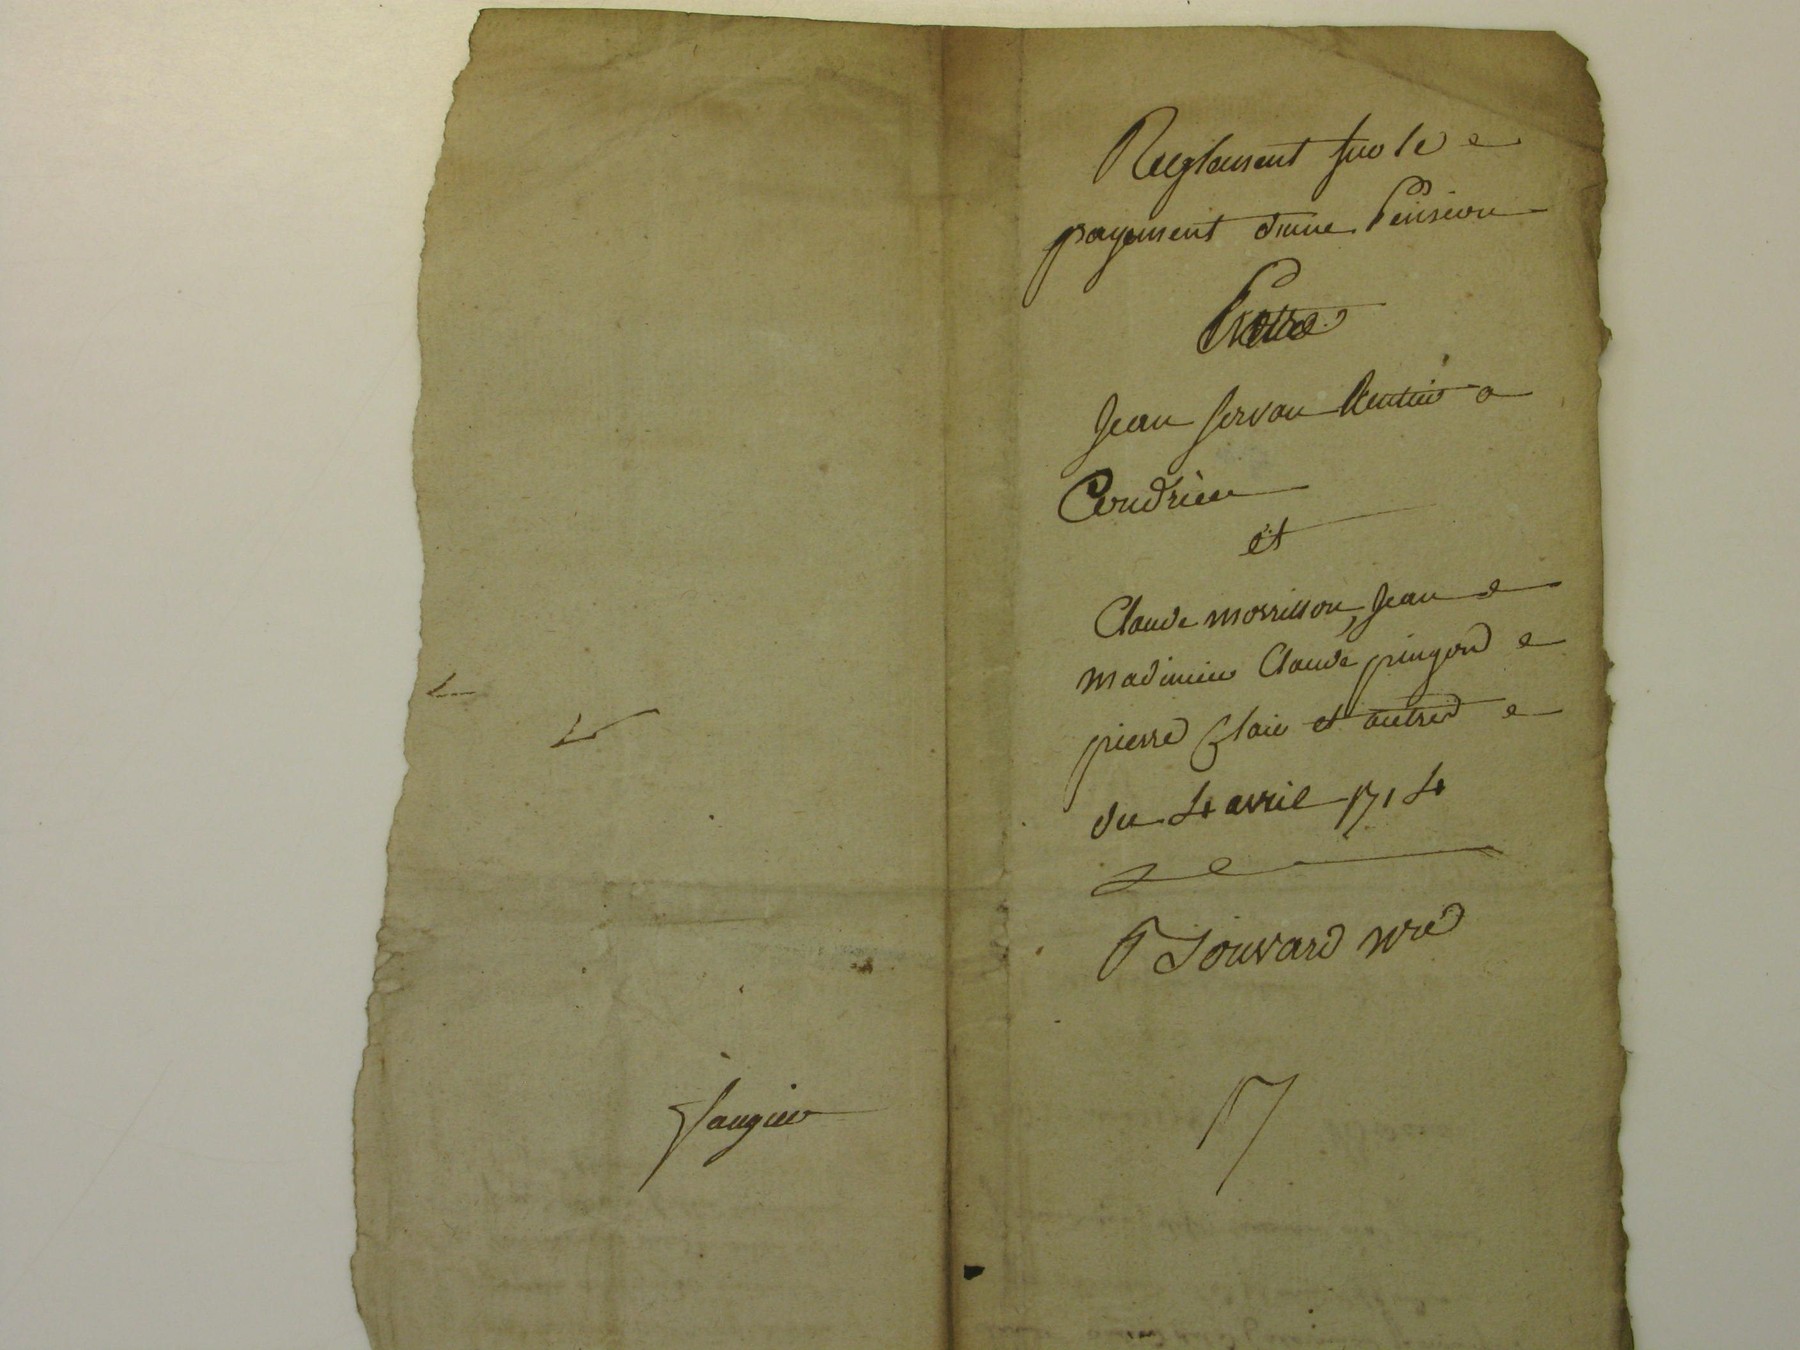 Reglement sur le
payement d'une Pension
Entre
Jean servan Rentier a
Condrieu
et
Claude morrillon, Jean
madinier Claude pingon
pierre flaie et autres
du 4 avril 1714
P Jouvard nre
17
faugier